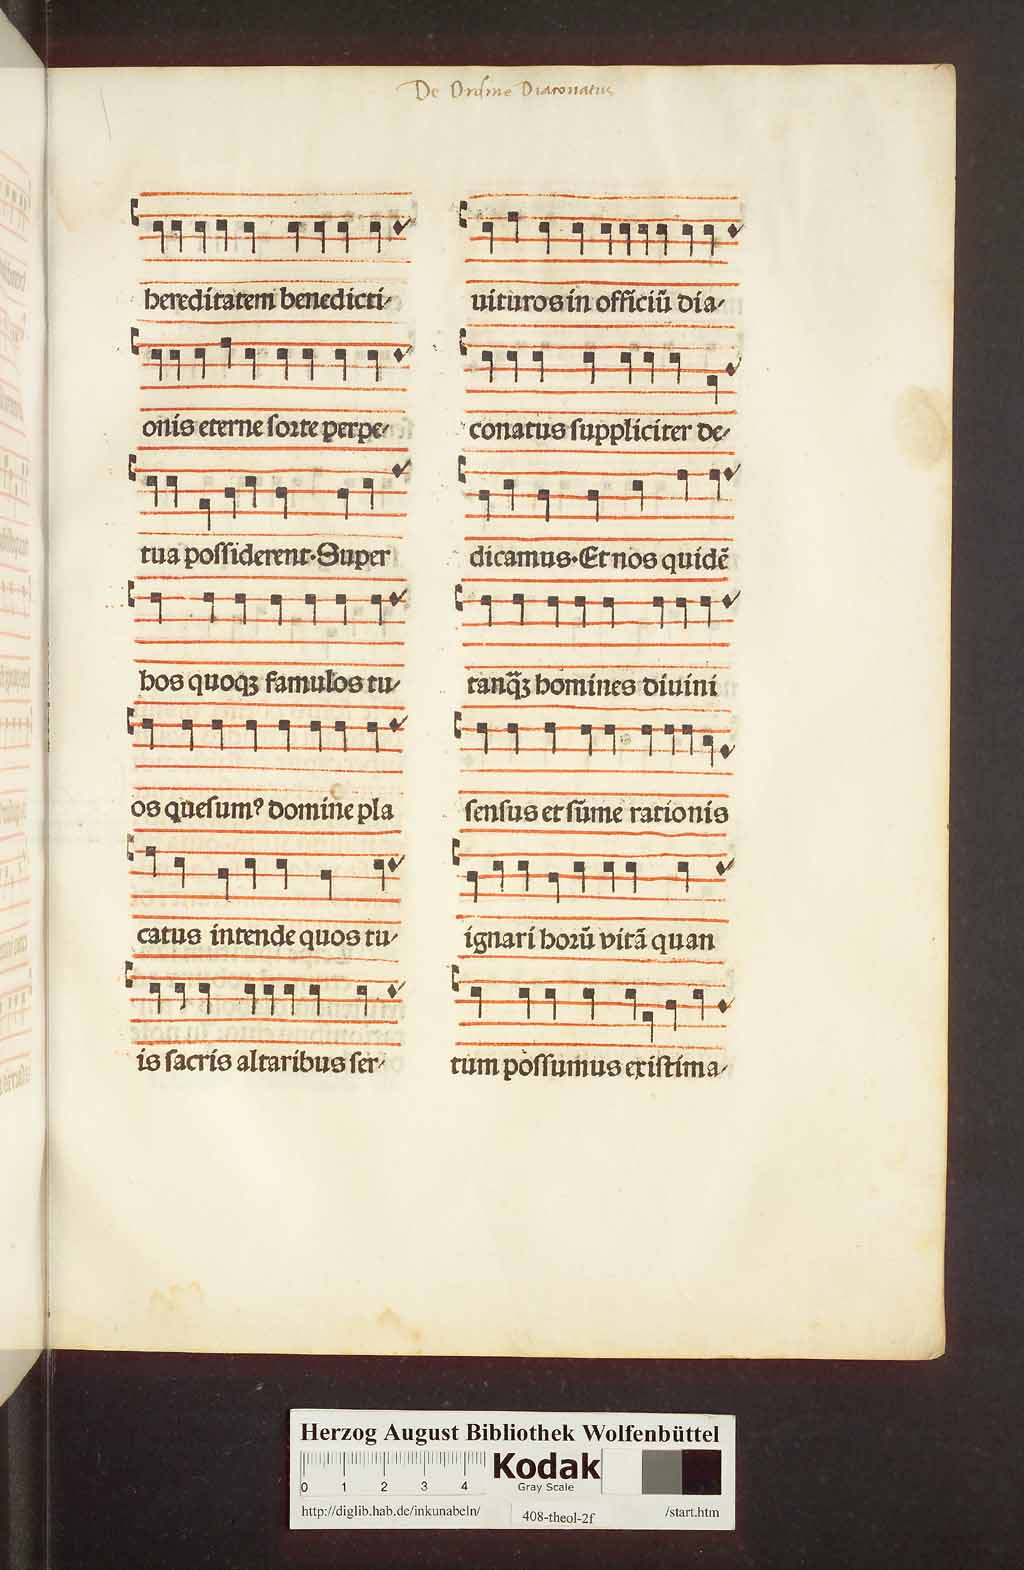 De Ordine Diaconatus
hereditatem benedicti-
onis eterne sorte perpe-
tua possiderent. Super
hos quoqꝫ famulos tu-
os quesumꝰ domine pla
catus intende quos tu-
is sacris altaribus ser-
uituros in officiū dia-
conatus suppliciter de-
dicamus. Et nos quidē
tanq̄ꝫ homines diuini
sensus et sūme rationis
ignari horū vitā quan
tum possumus existima-
Herzog August Bibliothek Wolfenbüttel
0 1 2 3 4
Kodak
Gray Scale
http://diglib.hab.de/inkunabeln/ 408-theol-2f /start.htm